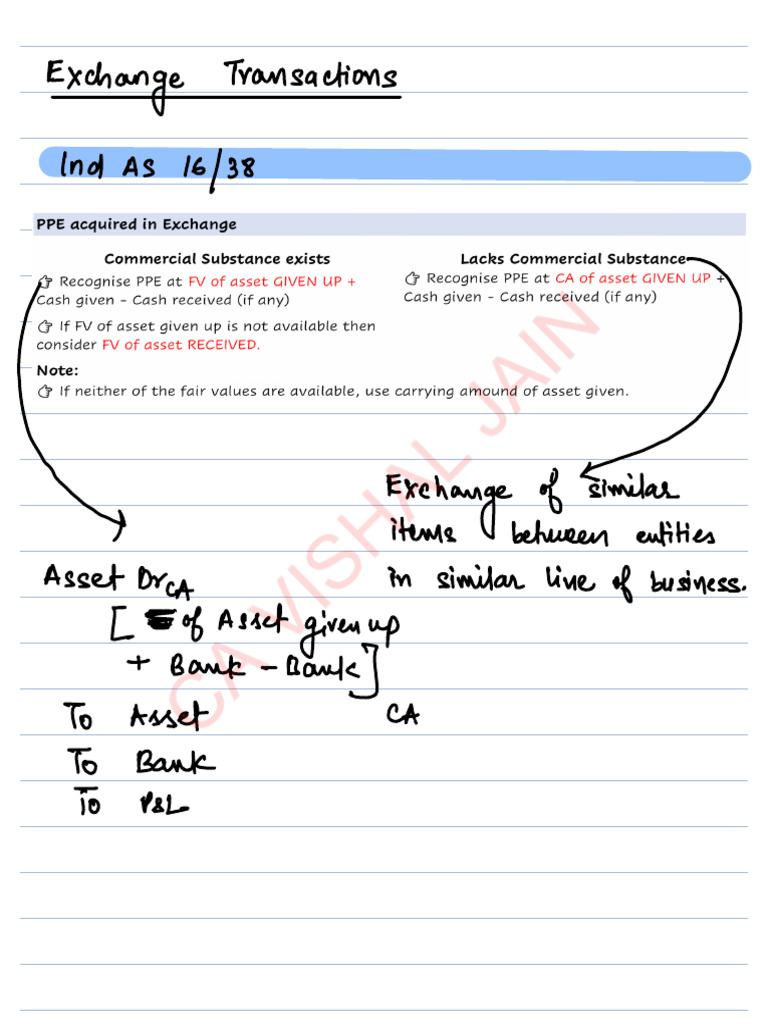 Exchange Transactions
Ind AS 16/38
PPE acquired in Exchange
Commercial Substance exists
👉 Recognise PPE at FV of asset GIVEN UP +
Cash given - Cash received (if any)
👉 If FV of asset given up is not available then
consider FV of asset RECEIVED.
Lacks Commercial Substance
👉 Recognise PPE at CA of asset GIVEN UP +
Cash given - Cash received (if any)
Note:
👉 If neither of the fair values are available, use carrying amound of asset given.
Exchange of similar
items between entities
in similar line of business.
Asset Dr CA
[ of Asset given up
+ Bank - Bank]
To Asset CA
To Bank
To P&L
CA VISHAL JAIN